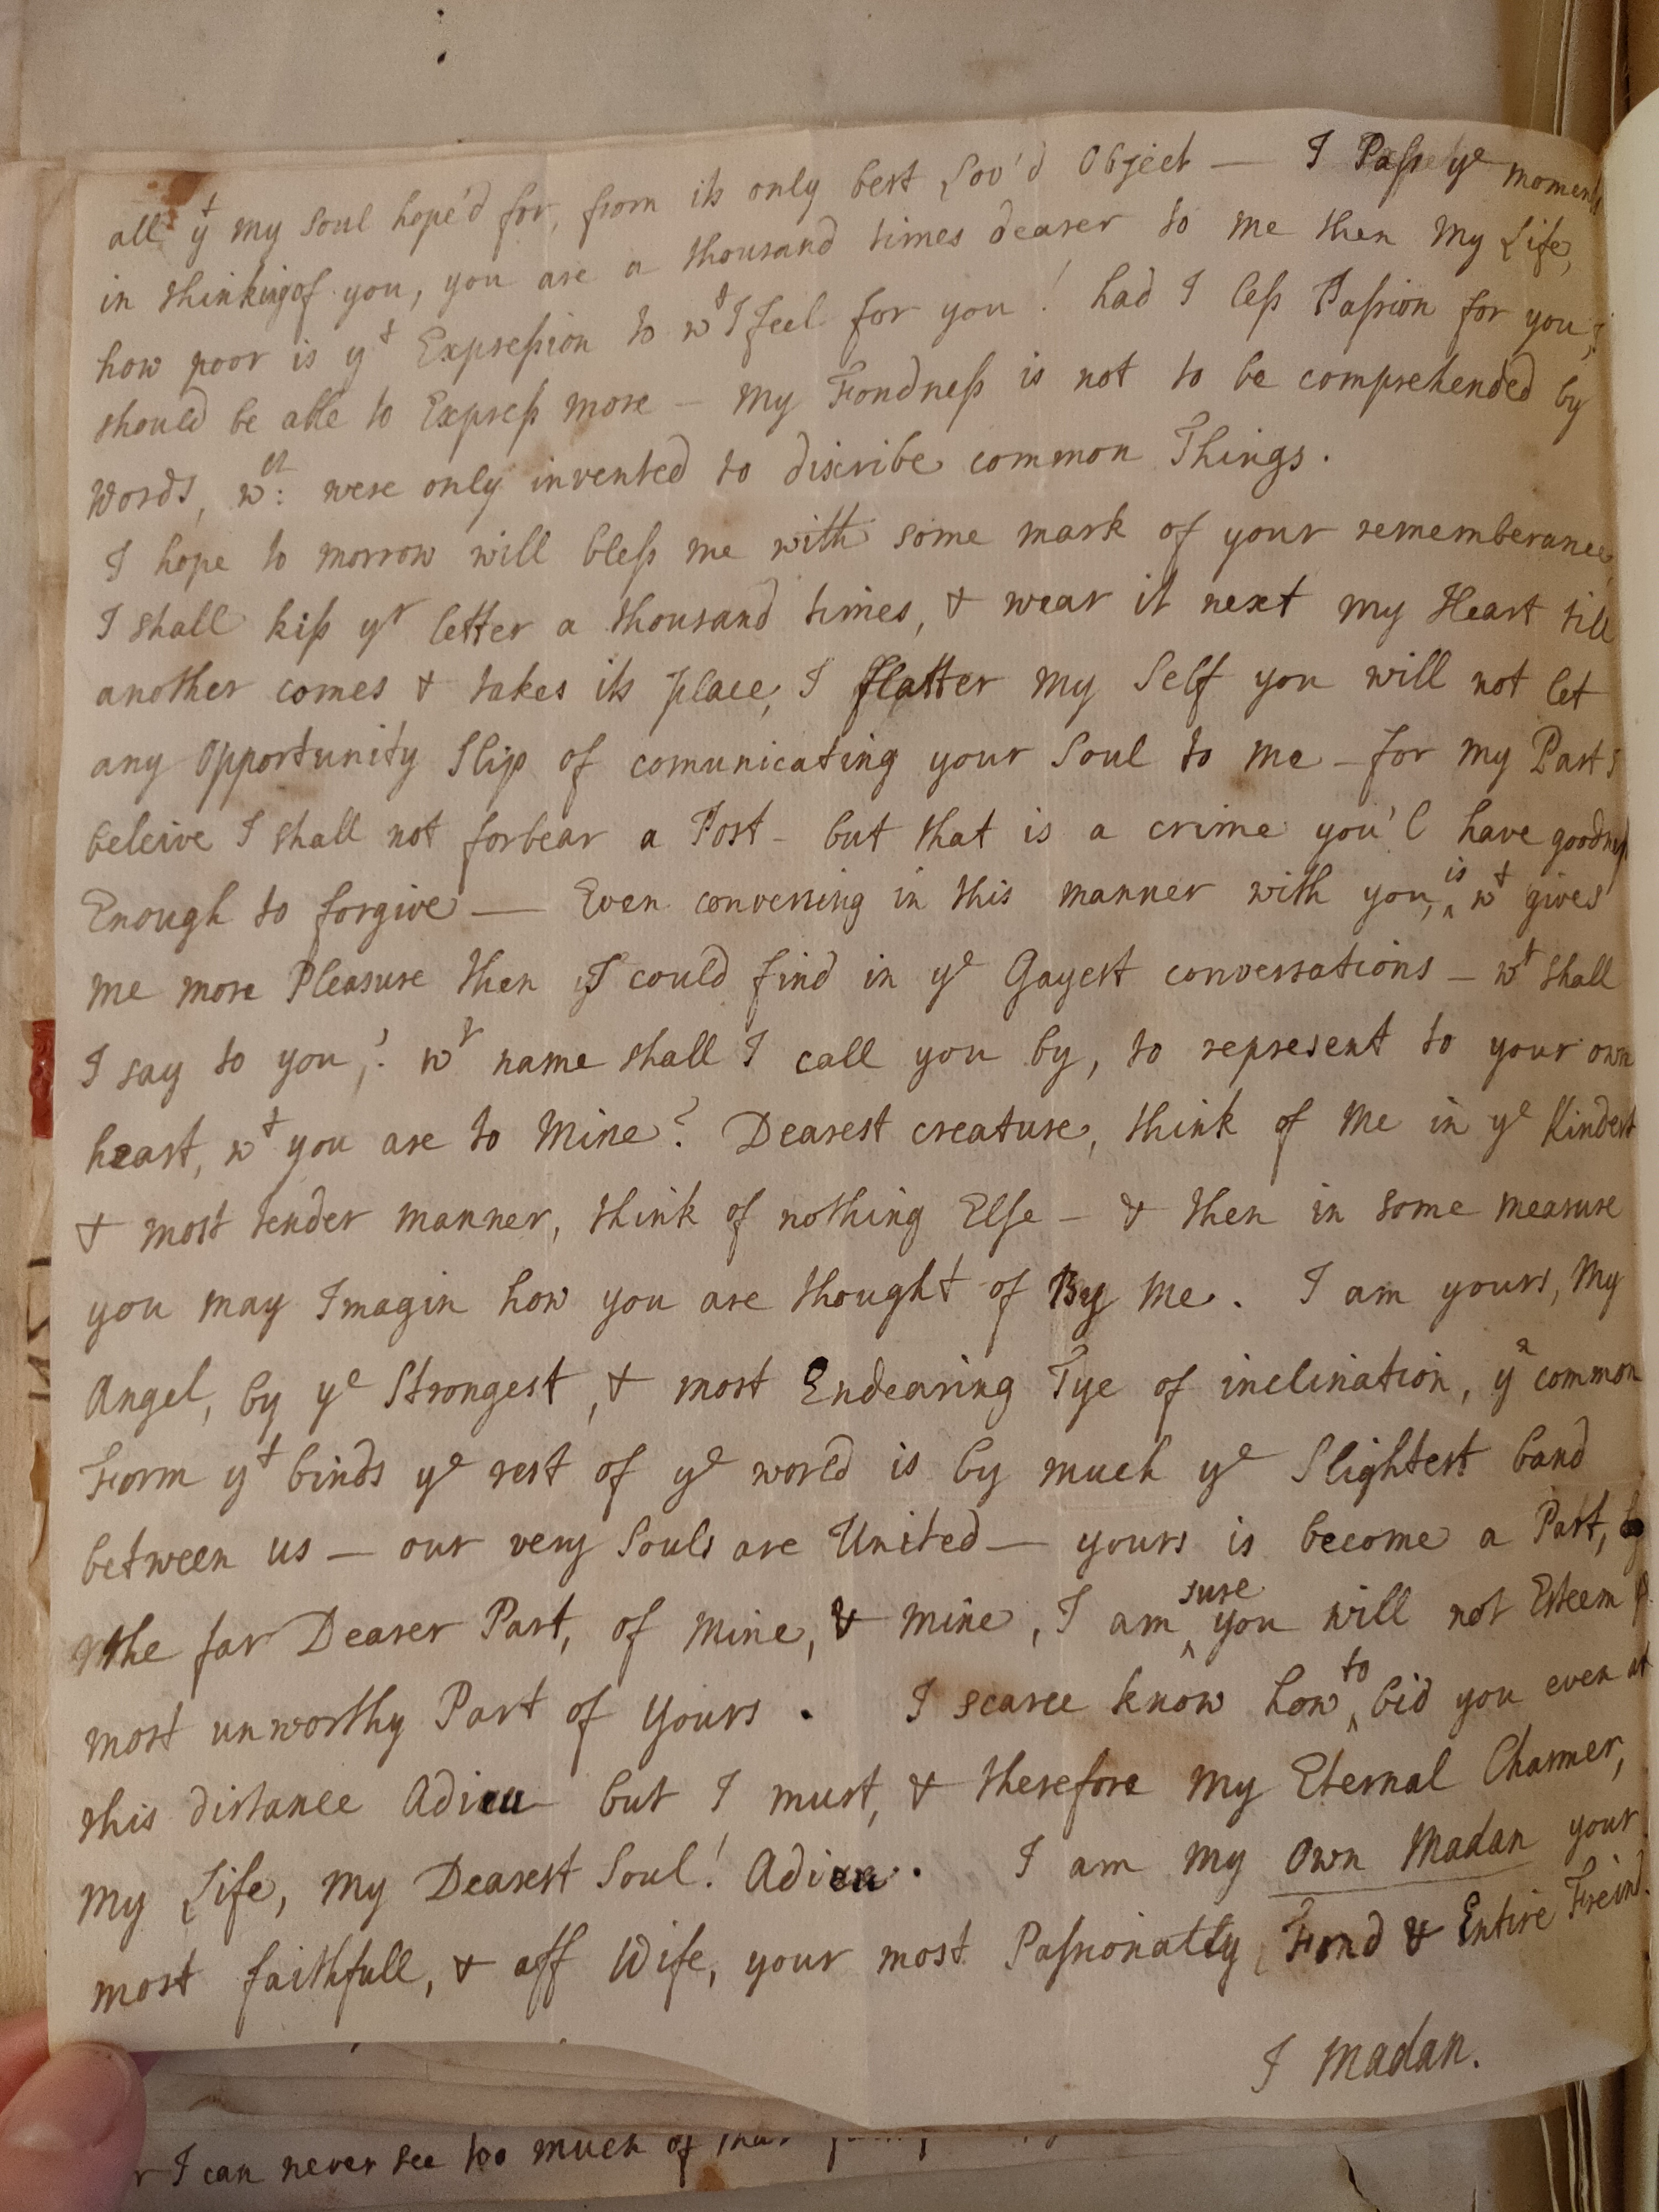 all yt my Soul hope'd for, from its only best Lov'd Object — I Pass ye moments
in thinking of you, you are a thousand times dearer to me then my Life,
how poor is yt Expression to wt I feel for you! had I less Passion for you, I
should be able to Express more — my Fondness is not to be comprehended by
Words, wch: were only invented to discribe common Things.
I hope to morrow will bless me with some mark of your rememberance
I shall kiss yr letter a thousand times, & wear it next my Heart till
another comes & takes its place, I flatter my Self you will not let
any Opportunity Slip of comunicating your Soul to me — for my Part I
beleive I shall not forbear a Post — but that is a crime you'l have goodness
Enough to forgive — Even conversing in this manner with you, is wt gives
me more Pleasure then I could find in ye Gayest conversations — wt shall
I say to you,? wt name shall I call you by, to represent to your own
heart, wt you are to Mine? Dearest creature, think of Me in ye Kindest
& most tender manner, think of nothing Else — & then in some measure
you may Imagin how you are thought of By Me. I am yours, My
Angel, by ye Strongest, & most Endearing Tye of inclination, ye common
Form yt binds ye rest of ye world is by much ye Slightest band
between us — our very Souls are United — yours is become a Part,
the far Dearer Part, of Mine, & mine, I am sure you will not Esteem
most unworthy Part of Yours. I scarce know how to bid you even at
this distance Adieu but I must, & therefore My Eternal Charmer,
My Life, My Dearest Soul! Adieu. I am My Own Madan your
most faithfull, & aff Wife, your most Passionatly Fond & Entire Freind.
J Madan.
I can never see too much of that